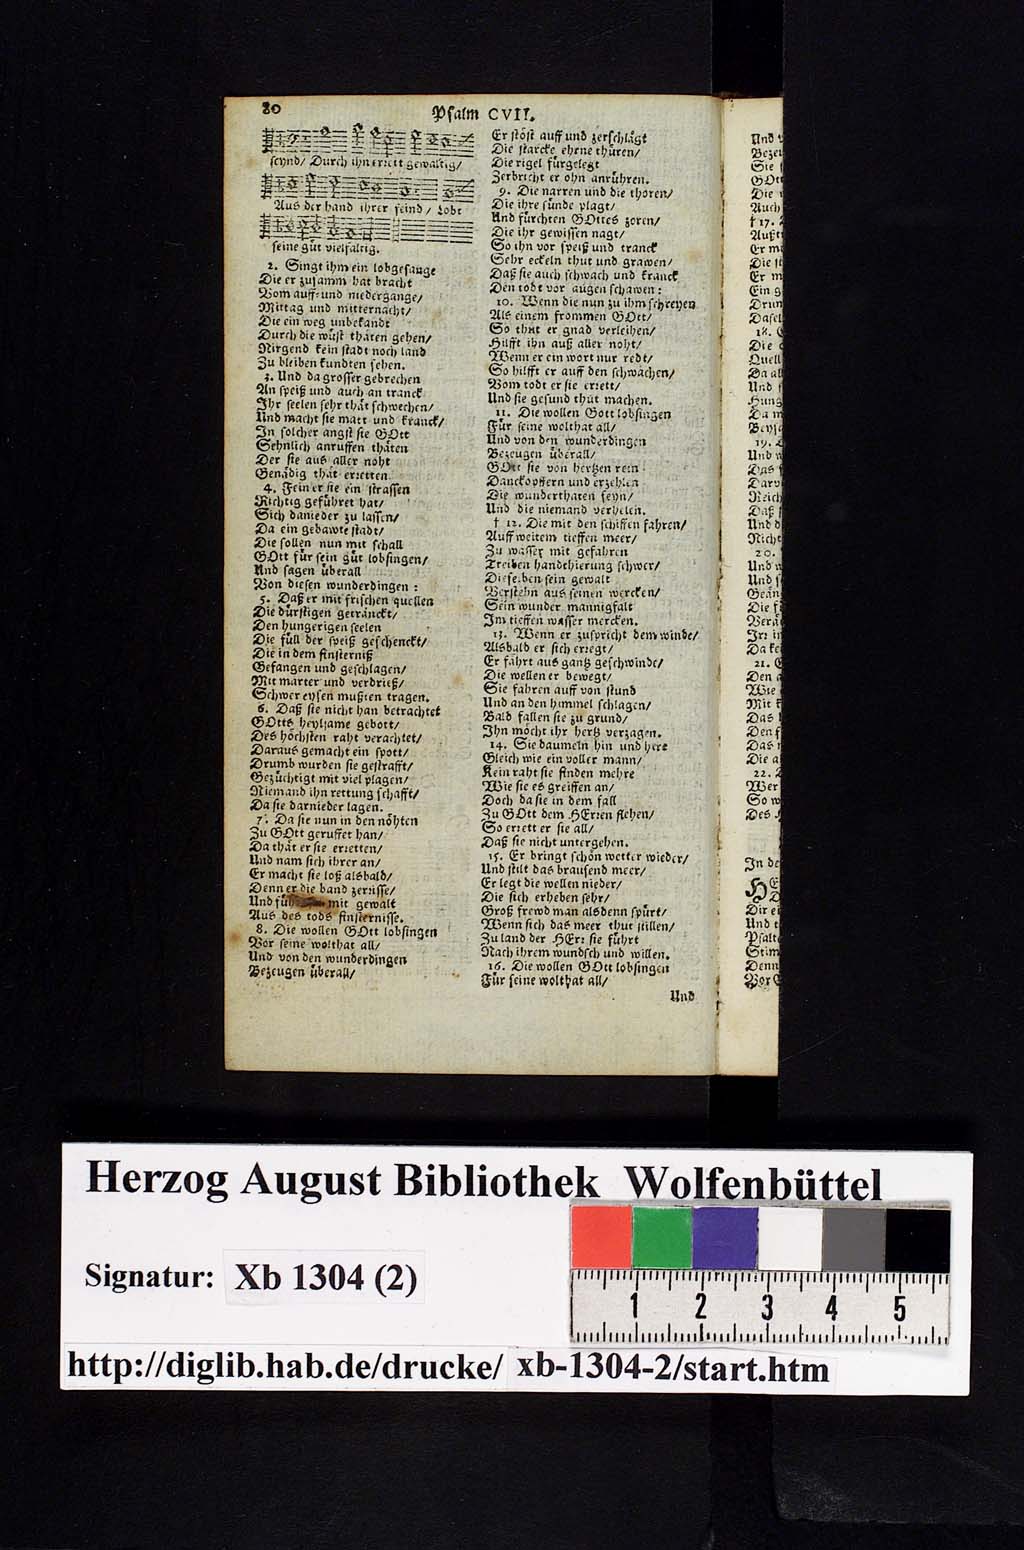 80
Psalm CVII.
seynd/ Durch ihn errett gewaltig/
Aus der hand ihrer feind/ Lobt
seine güt vielfältig.
2. Singt ihm ein lobgesange
Die er zusamm hat bracht
Vom auff- und niedergange/
Mittag und mitternacht/
Die ein weg unbekandt
Durch die wüst thäten gehen/
Nirgend kein stadt noch land
Zu bleiben kundten sehen.
3. Und da grosser gebrechen
An speiß und auch an tranck
Ihr seelen sehr thät schwechen/
Und macht sie matt und kranck/
In solcher angst sie GOtt
Sehnlich anruffen thäten
Der sie aus aller noht
Genädig thät erretten.
4. Fein er sie ein strassen
Richtig geführet hat/
Sich danieder zu lassen/
Da ein gebawte stadt/
Die sollen nun mit schall
GOtt für sein güt lobsingen/
Und sagen überall
Von diesen wunderdingen:
5. Daß er mit frischen quellen
Die dürstigen geträncket/
Den hungerigen seelen
Die füll der speiß geschenckt/
Die in dem finsterniß
Gefangen und geschlagen/
Mit marter und verdrieß/
Schwer eysen mußten tragen.
6. Daß sie nicht han betrachtet
GOtts heylsame gebott/
Des höchsten raht verachtet/
Daraus gemacht ein spott/
Drumb wurden sie gestrafft/
Gezüchtigt mit viel plagen/
Niemand ihn rettung schafft/
Da sie darnieder lagen.
7. Da sie nun in den nöhten
Zu GOtt geruffet han/
Da thät er sie erretten/
Und nam sich ihrer an/
Er macht sie loß alsbald/
Denn er die band zerrisse/
Und mit gewalt
Aus des tods finsternisse.
8. Die wollen GOtt lobsingen
Vor seine wolthat all/
Und von den wunderdingen
Bezeugen überall/
Er stöst auff und zerschlägt
Die starcke ehrne thüren/
Die rigel fürgelegt
Zerbricht er ohn anrühren.
9. Die narren und die thoren/
Die ihre sünde plagt/
Und fürchten GOttes zoren/
Die ihr gewissen nagt/
So ihn vor speiß und tranck
Sehr eckeln thut und grawen/
Daß sie auch schwach und kranck
Den todt vor augen schawen:
10. Wenn die nun zu ihm schreyen
Als einem frommen GOtt/
So thut er gnad verleihen/
Hilfft ihn auß aller noht/
Wenn er ein wort nur redt/
So hilfft er auff den schwachen/
Vom todt er sie errett/
Und sie gesund thut machen.
11. Die wollen Gott lobsingen
Für seine wolthat all/
Und von den wunderdingen
Bezeugen überall/
GOtt sie von hertzen rein
Danckopffern und erzehlen
Die wunderthaten seyn/
Und die niemand verhelen.
† 12. Die mit den schiffen fahren/
Auff weitem tieffen meer/
Zu wasser mit gefahren
Treiben handthierung schwer/
Dieselben sein gewalt
Verstehn aus seinen wercken/
Sein wunder mannigfalt
Im tieffen wasser mercken.
13. Wenn er zuspricht dem winde/
Alsbald er sich erregt/
Er fährt aus gantz geschwinde/
Die wellen er bewegt/
Sie fahren auff von stund
Und an den himmel schlagen/
Bald fallen sie zu grund/
Ihn möcht ihr hertz verzagen.
14. Sie daumeln hin und here
Gleich wie ein voller mann/
Kein raht sie finden mehre
Wie sie es greiffen an/
Doch da sie in dem fall
Zu GOtt dem HErren flehen/
So errett er sie all/
Daß sie nicht untergehen.
15. Er bringt schön wetter wieder/
Und stilt das brausend meer/
Er legt die wellen nieder/
Die sich erheben sehr/
Groß frewd man alsdenn spürt/
Wenn sich das meer thut stillen/
Zu land der HErr sie führt
Nach ihrem wundsch und willen.
16. Die wollen GOtt lobsingen
Für seine wolthat all/
Und
Herzog August Bibliothek Wolfenbüttel
Signatur: Xb 1304 (2)
1 2 3 4 5
http://diglib.hab.de/drucke/ xb-1304-2/start.htm